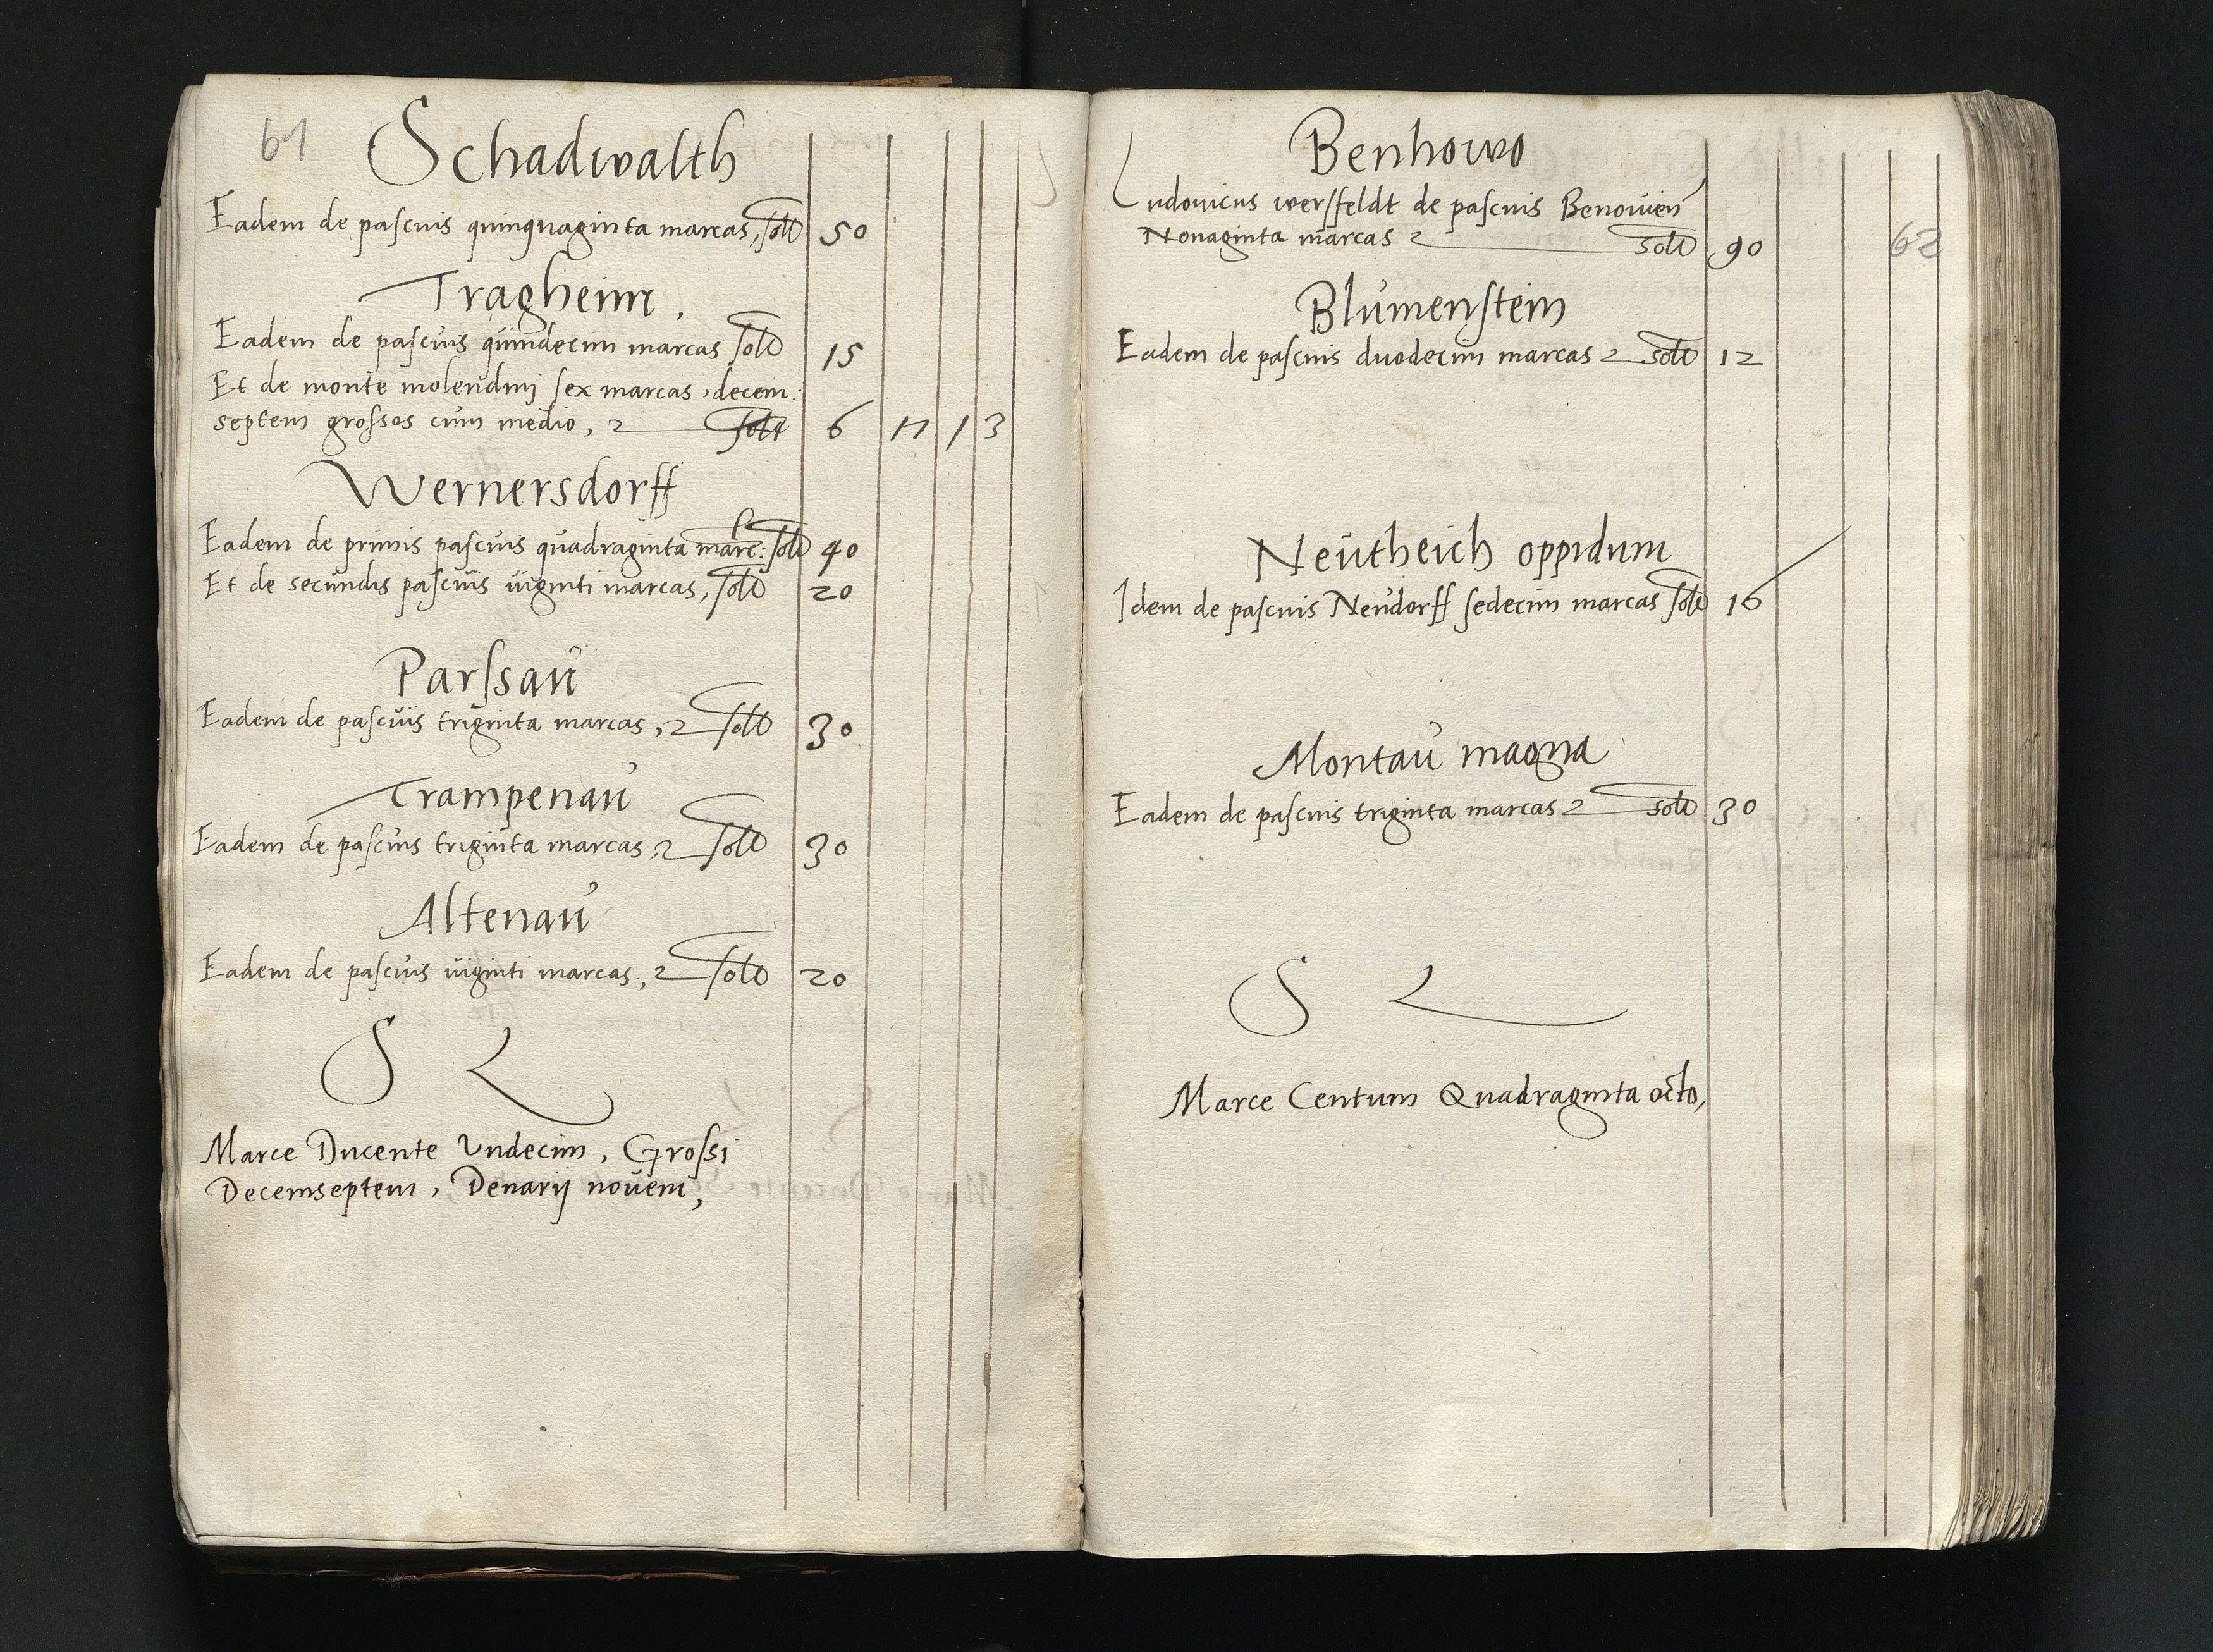 61
Schadwalth
Eadem de pascuis quinquaginta marcas, solt 50
Tragheim.
Eadem de pascuis quindecim marcas solt 15
Et de monte molendinj sex marcas, decem:
septem grossos cum medio, solt 6 17 1 3
Wernersdorff
Eadem de primis pascuis quadraginta marc: solt 40
Et de secundis pascuis viginti marcas, solt 20
Parssau
Eadem de pascuis triginta marcas, solt 30
Trampenau
Eadem de pascuis triginta marcas, solt 30
Altenau
Eadem de pascuis viginti marcas, solt 20
S L
Marce Ducente Undecim, Grossi
Decemseptem, Denarij novem,
Benhowo
Ludovicus wersfeldt de pascuis Benovien
Nonaginta marcas solt 90
62
Blumenstein
Eadem de pascuis duodecim marcas solt 12
Neutheich oppidum
Idem de pascuis Neudorff sedecim marcas solt 16
Montau magna
Eadem de pascuis triginta marcas solt 30
S L
Marce Centum Quadraginta octo,